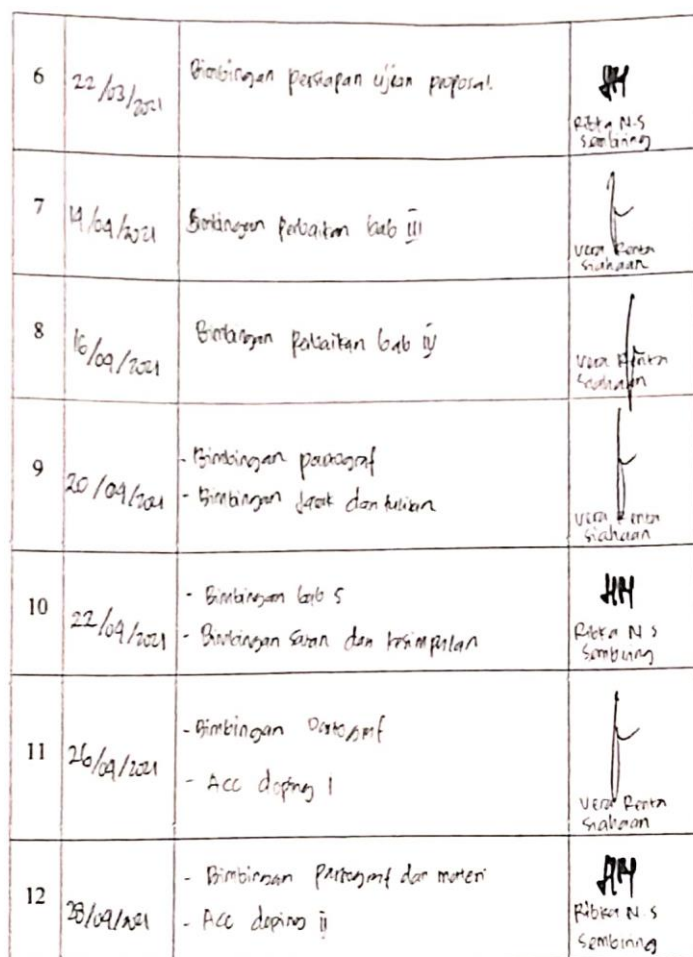 6
22/03/2021
Bimbingan persiapan ujian proposal.
Ribka N.S
Sembiring
7
19/04/2021
Bimbingan perbaikan bab III
Vera Renta
Siahaan
8
16/04/2021
Bimbingan perbaikan bab IV
Vera Renta
Siahaan
9
20/04/2021
- Bimbingan partograf
- Bimbingan jarak dan tulisan
Vera Renta
Siahaan
10
22/04/2021
- Bimbingan bab 5
- Bimbingan saran dan kesimpulan
Ribka N S
Sembiring
11
26/04/2021
- Bimbingan Partograf
- Acc doping I
Vera Renta
Siahaan
12
28/04/2021
- Bimbingan partograf dan materi
- Acc doping II
Ribka N.S
Sembiring